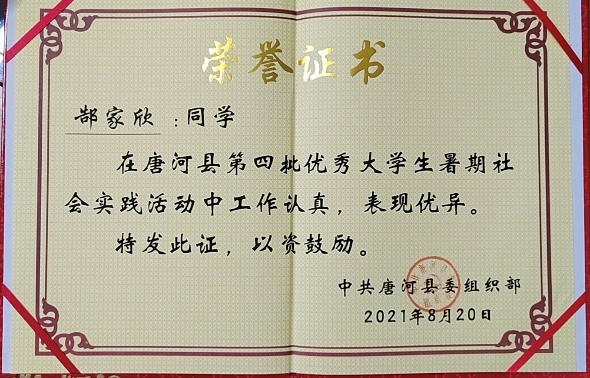 荣誉证书
郜家欣 :同学
在唐河县第四批优秀大学生暑期社
会实践活动中工作认真，表现优异。
特发此证，以资鼓励。
中共唐河县委组织部
2021年8月20日